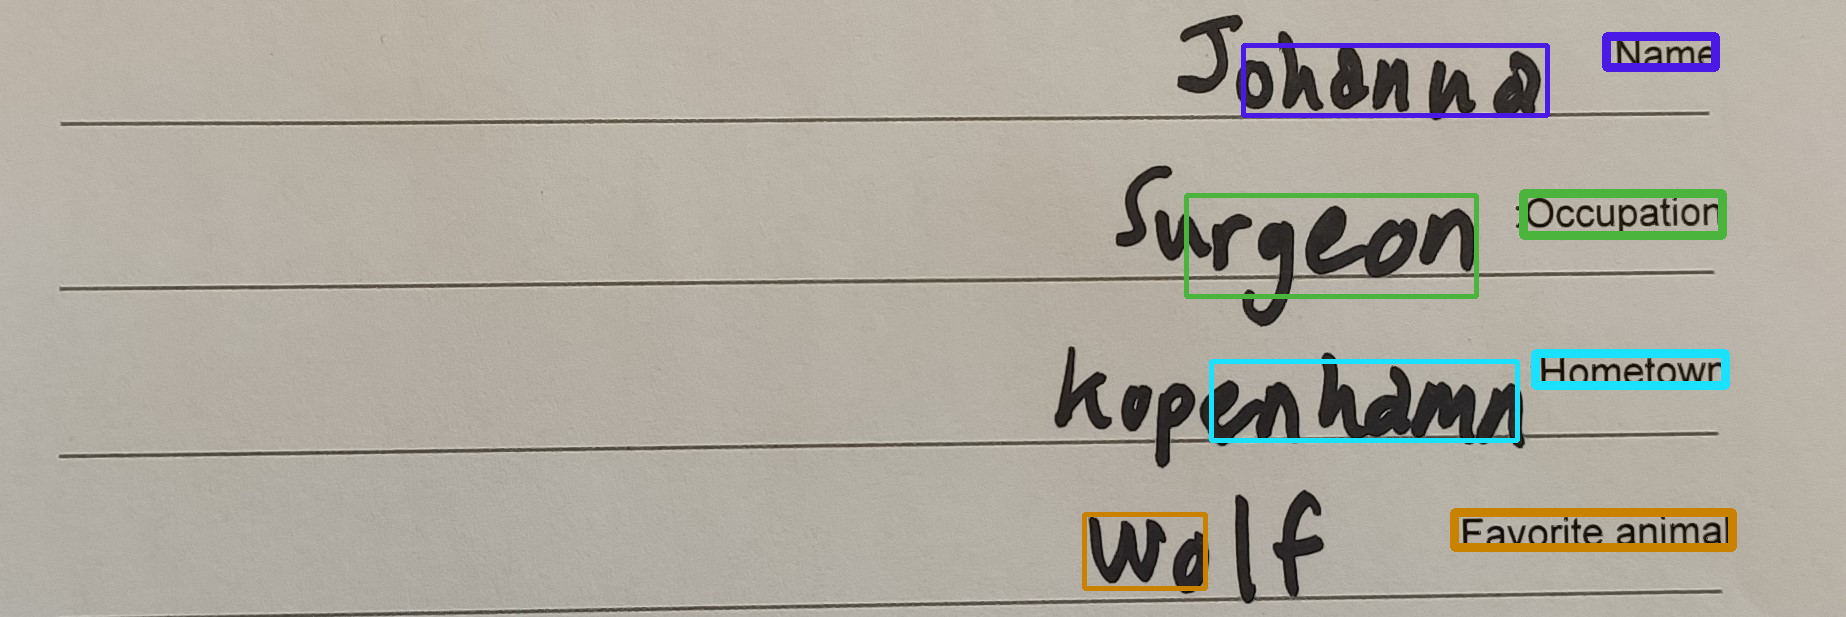 Johanna Name
Surgeon :Occupation
Kopenhamn Hometown
Wolf Favorite animal